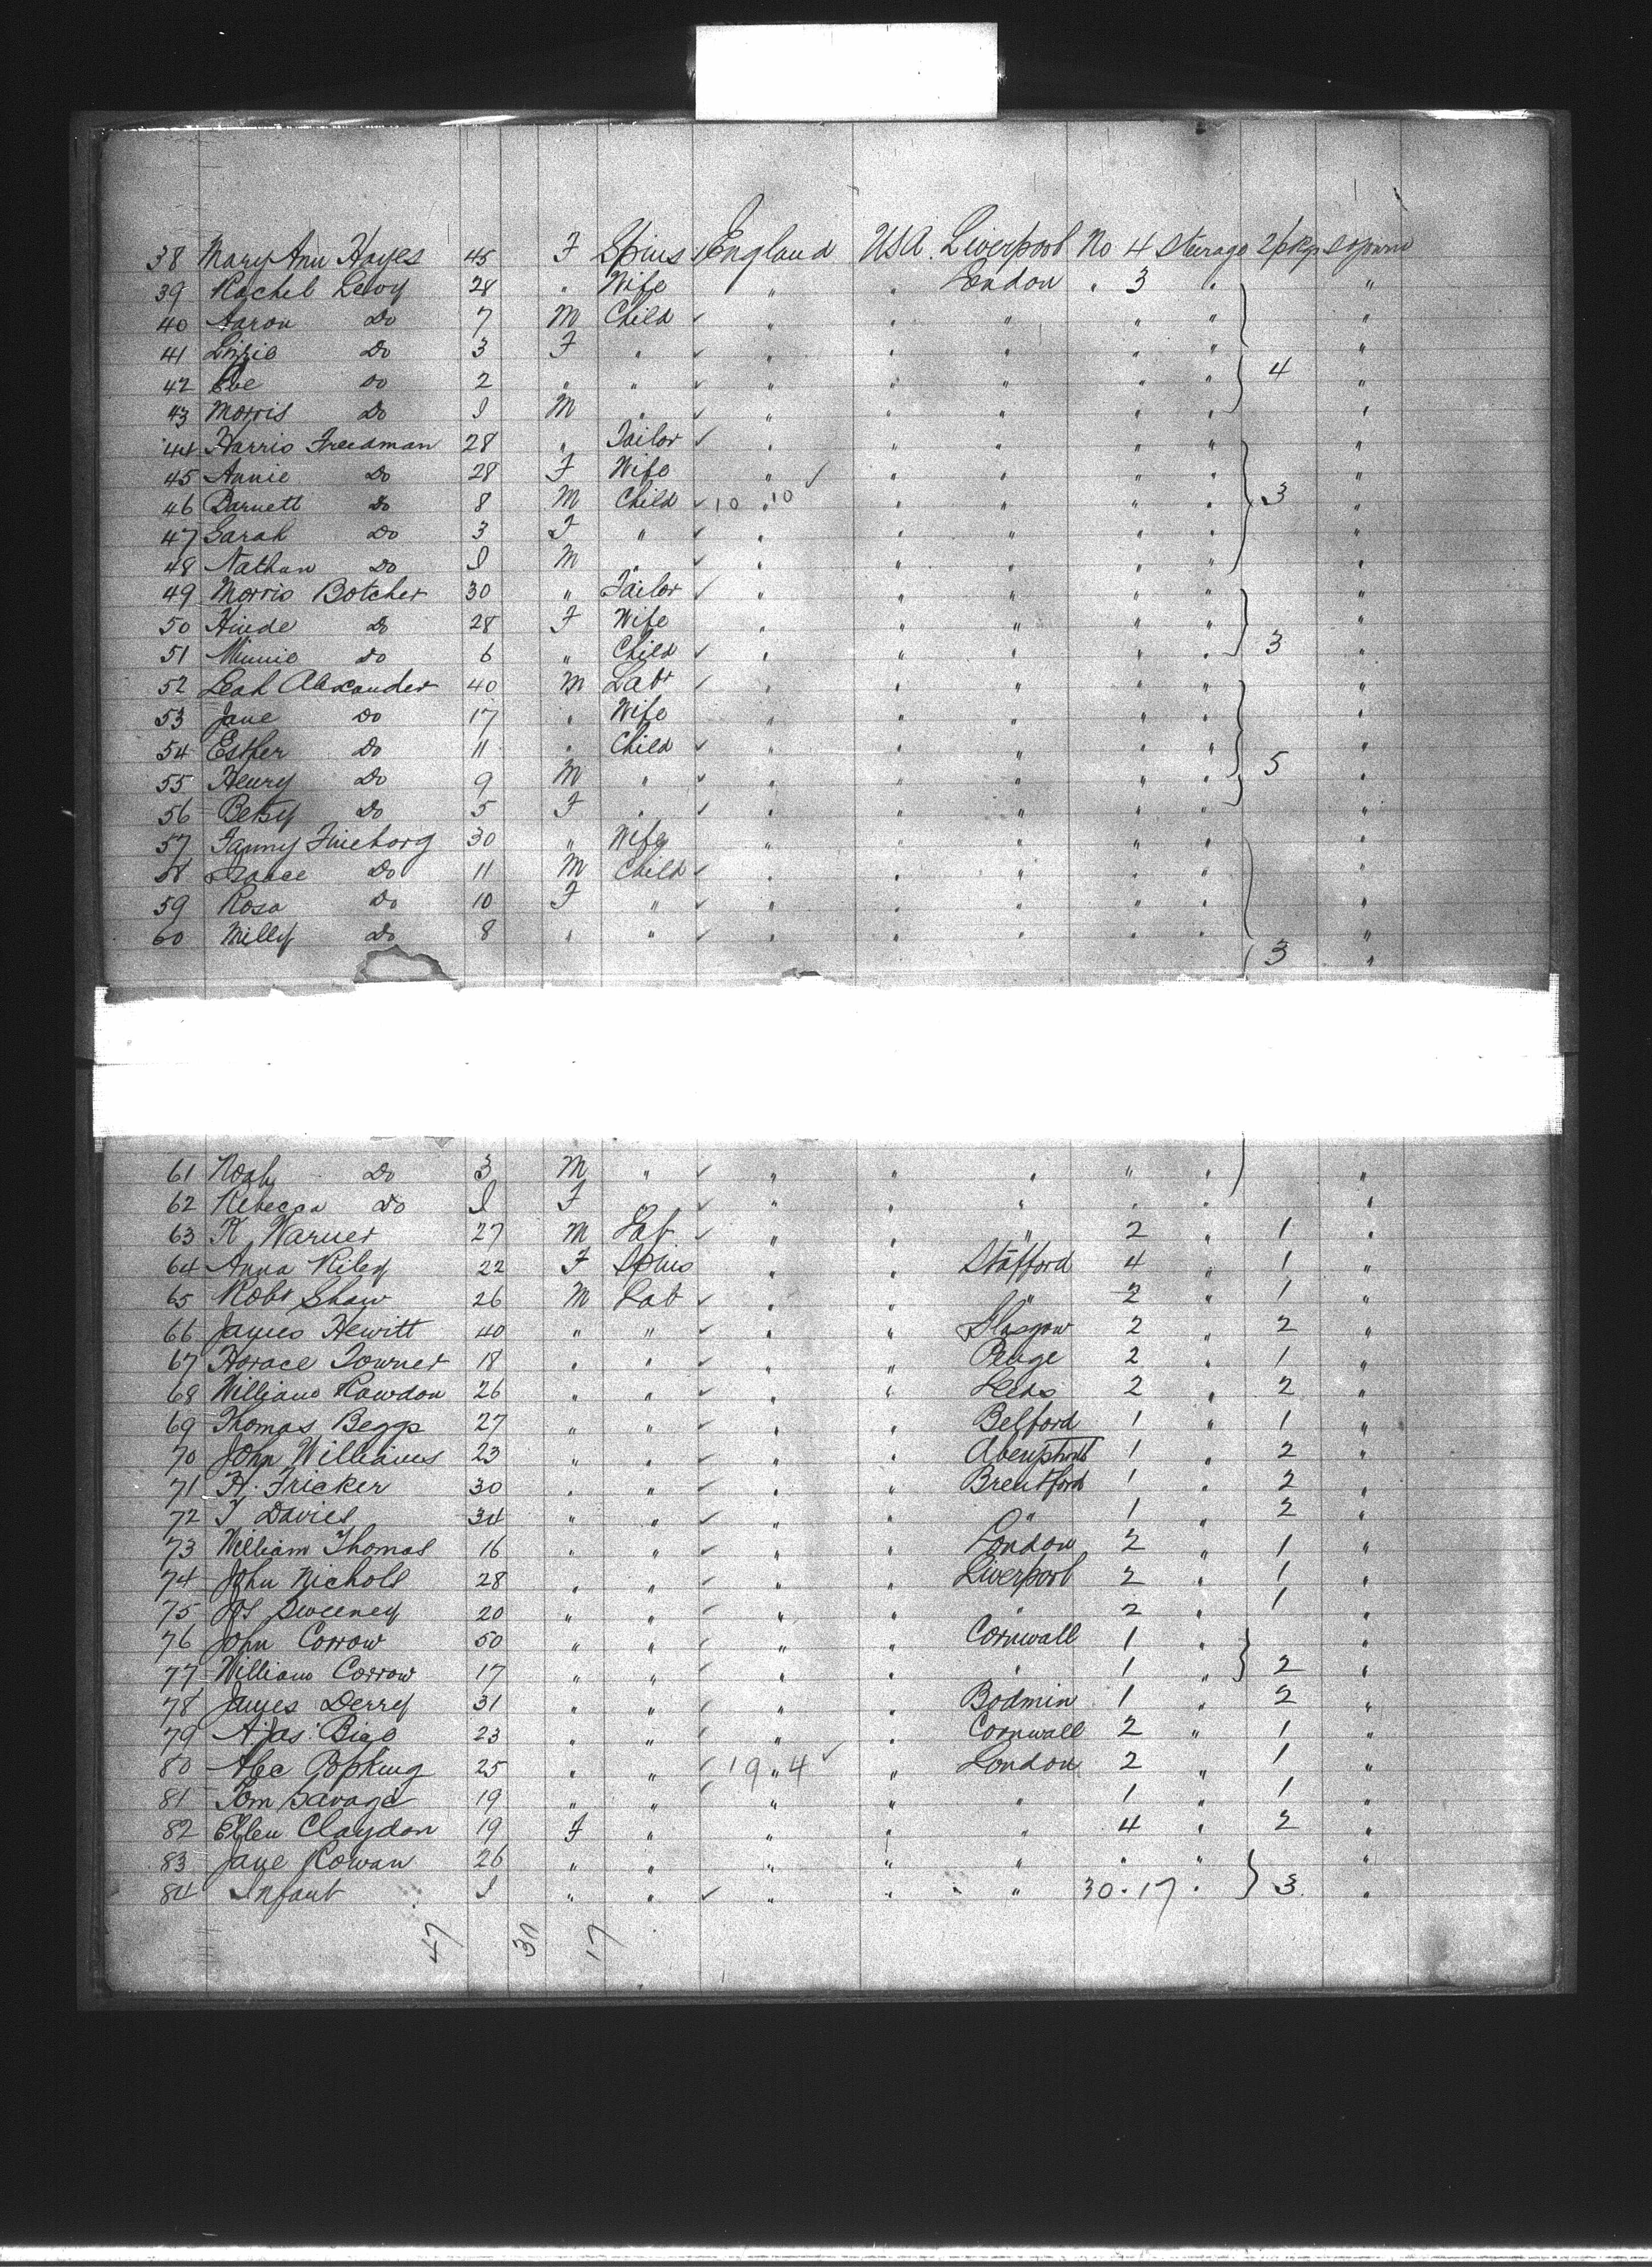 38 Mary Ann Hayes 45 F Spins England USA Liverpool No 4 Steerage 2 pkgs sojourn
39 Rachel Levy 28 " Wife " " London " 3 " "
40 Aaron Do 7 M Child " " " " " "
41 Lizzie Do 3 F " " " " " " "
42 Eve Do 2 " " " " " " " 4 "
43 Morris Do I M " " " " " " "
44 Harris Freedman 28 " Tailor " " " " " "
45 Annie Do 28 F Wife " " " " " "
46 Barnett Do 8 M Child 10 " 10 " " " " 3 "
47 Sarah Do 3 F " " " " " " "
48 Nathan Do I M " " " " " " "
49 Morris Botcher 30 " Tailor " " " " " "
50 Hinde Do 28 F Wife " " " " " "
51 Minnie Do 6 " Child " " " " " 3 "
52 Leah Alexander 40 M Labr " " " " " "
53 Jane Do 17 " Wife " " " " " "
54 Esther Do 11 " Child " " " " " "
55 Henry Do 9 M " " " " " " 5 "
56 Betsy Do 5 F " " " " " " "
57 Fanny Fineborg 30 " Wife " " " " " "
58 Isaace Do 11 M Child " " " " " "
59 Rosa Do 10 F " " " " " " "
60 Milly Do 8 " " " " " " " "
3 "
61 Noah Do 3 M " " " " " " "
62 Rebecca Do I F " " " " " " "
63 K Warner 27 M Lab " " " 2 " 1 "
64 Anna Riley 22 F Spins " " Stafford 4 " 1 "
65 Robt Shaw 26 M Lab " " " 2 " 1 "
66 James Hewitt 40 " " " " Glasgow 2 " 2 "
67 Horace Towner 18 " " " " Penge 2 " 1 "
68 William Rawdon 26 " " " " Leeds 2 " 2 "
69 Thomas Beggs 27 " " " " Belford 1 " 1 "
70 John Williams 23 " " " " 1 " 2 "
71 H. Fricker 30 " " " " Brentford 1 " 2 "
72 T Davies 34 " " " " " 1 " 2 "
73 William Thomas 16 " " " " London 2 " 1 "
74 John Nichols 28 " " " " Liverpool 2 " 1 "
75 Jos Sweeney 20 " " " " " 2 " 1 "
76 John Corrow 50 " " " " Cornwall 1 " "
77 William Corrow 17 " " " " " 1 " 2 "
78 James Derry 31 " " " " Bodmin 1 " 2 "
79 A. Jas. 23 " " " " Cornwall 2 " 1 "
80 Alec Popking 25 " " 19 " 4 " London 2 " 1 "
81 Tom Savage 19 " " " " " 1 " 1 "
82 Ellen Claydon 19 F " " " " 4 " 2 "
83 Jane Rowan 26 " " " " " " " "
84 Infant I " " " " " 30 . 17 " 3 "
47 30 17